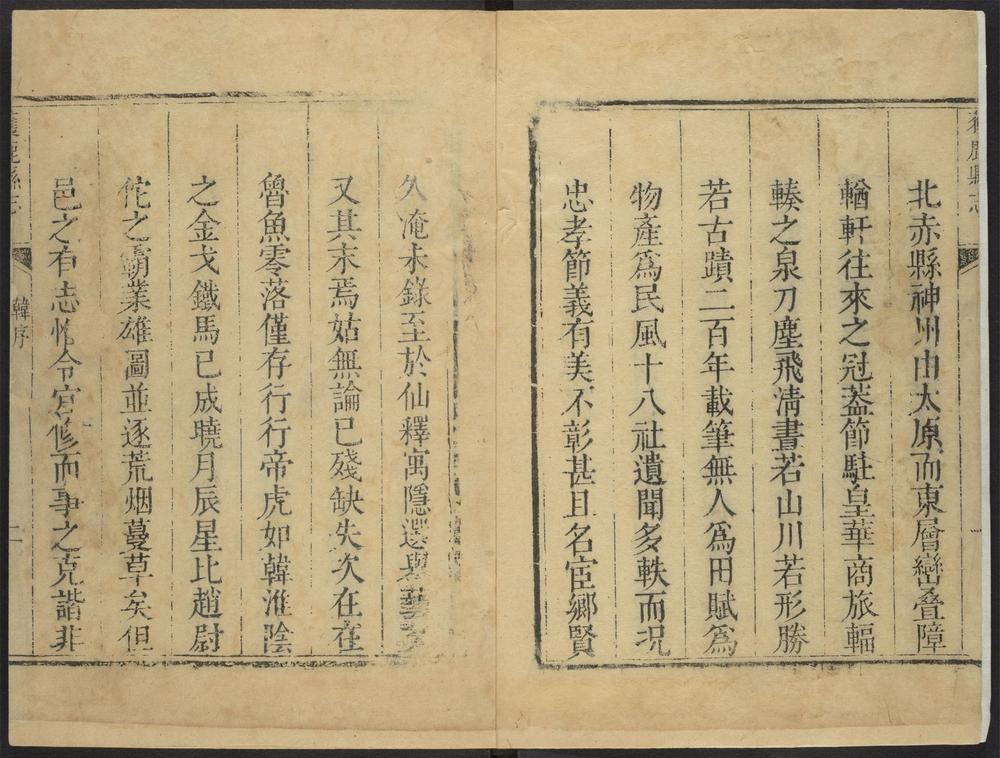 獲鹿縣志
北赤縣神州由太原而東層巒疊障
輶軒往來之冠蓋節駐皇華商旅輻
輳之泉刀塵飛清晝若山川若形勝
若古蹟二百年載筆無人為田賦為
物產為民風十八社遺聞多軼而况
忠孝節義有美不彰甚且名宦鄉賢
久淹未錄至於仙釋寓隱選舉藝文
又其末焉姑無論已殘缺失次在在
魯魚零落僅存行行帝虎如韓淮陰
之金戈鐵馬已成曉月辰星比趙尉
佗之霸業雄圖並逐荒烟蔓草矣但
邑之有志惟令宜修而事之克諧非
獲鹿縣志
韓序
二